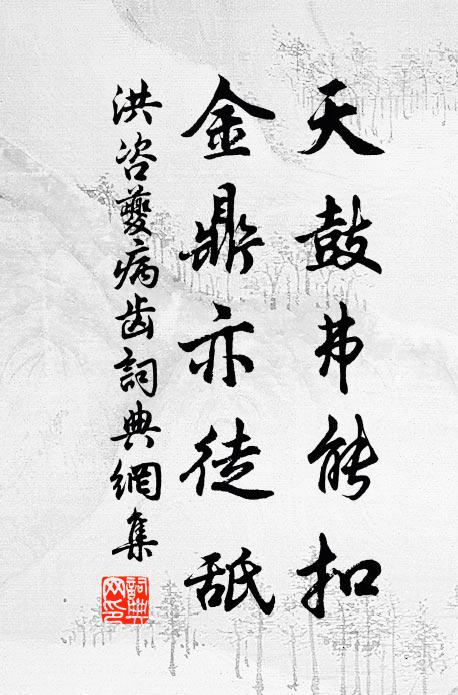 天鼓弗能扣
金鼎亦徒舐
洪咨夔病齒詞典網集
詞典